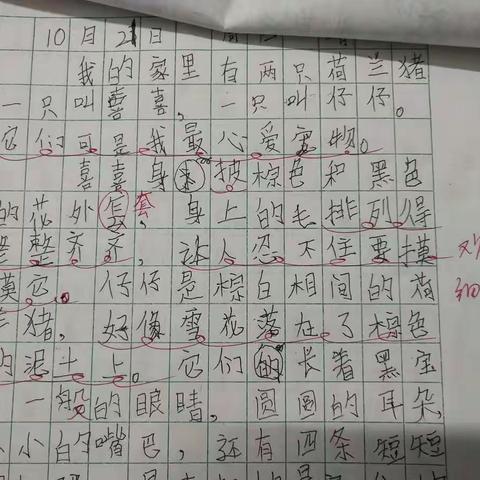 10月21日
我的家里有两只荷兰猪
一只叫喜喜，一只叫仔仔。
它们可是我最心爱宠物。
喜喜身披棕色和黑色
的花外套，身上的毛排列得
整整齐齐，让人忍不住要摸
摸它。仔仔是棕白相间的荷
兰猪，好像雪花落在了棕色
的泥土上。它们的长着黑宝
一般的眼睛，圆圆的耳朵，
小小的嘴巴，还有四条短短